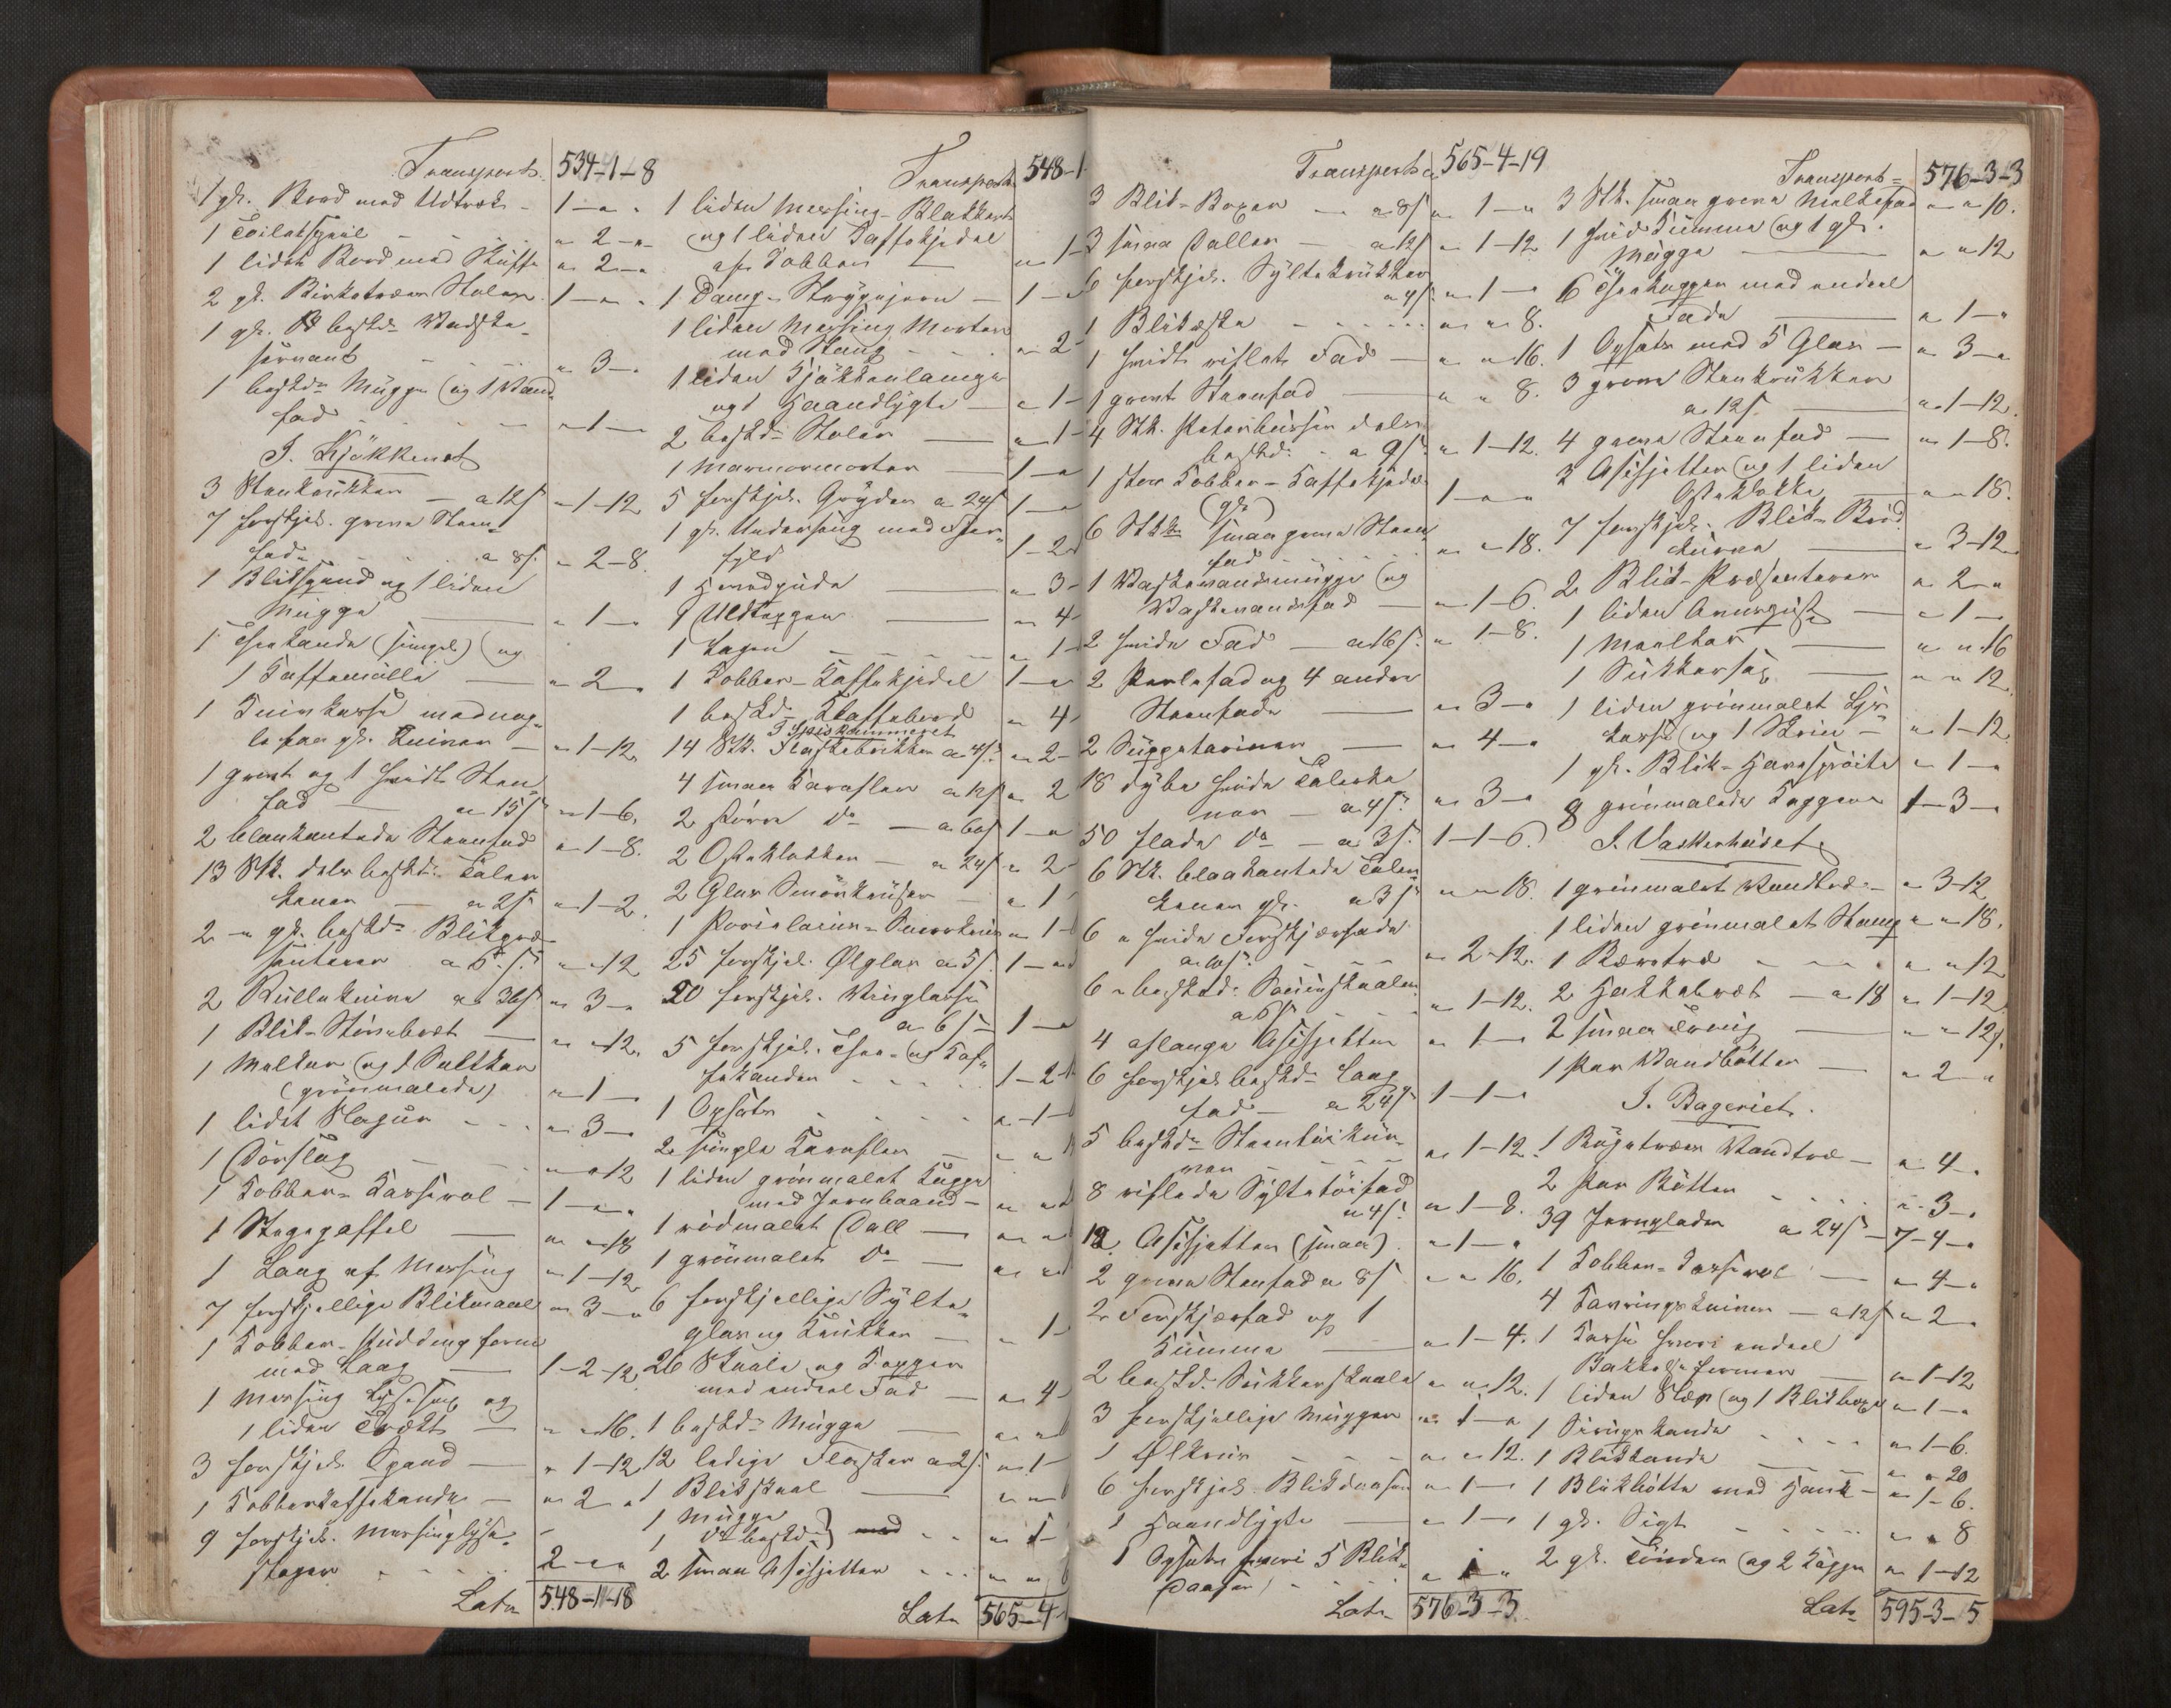 Transport. 534-1-8
1 gl. Bord med Udtræk - 1-"-"
1 Toiletspeil - - " 2-"
1 lidet Bord med Skuffe " 2-"
2 gl. Birketræes Stoler 1-"-"
1 gl. beskd. Vadske-
servant - - " 3-"
1 beskd. Mugge og 1 Vand-
fad - - - - " 1-"
I. Kjøkkenet
3 Steenkrukker - a 12s " 1-12
7 forskjel. grove Steen-
fade - - a 8s. " 2-8.
1 Blikspand og 1 liden
Mugge " 1-"
1 Theekande (simpel) og
1 Kaffemølle " 2-"
1 Knivkasse med nog-
le faa gl. Kniver - " 1-12
1 grovt og 1 hvidt Steen-
fad - a 15s " 1-6.
2 blaakantede Steenfad " 1-8.
13 Stk. dels beskd. Taler-
kener - a 2s " 1-2.
2 " gl. beskd. Blikpræ-
senterer a 6s. " " 12
2 Rulleknive a 36s " 3-"
1 Blik-Størnbret - " " 12.
1 Melkar og 1 Saltkar
(grønmalede) " 1-"
1 lidet Slagur - - - " 3-"
1 Dørslag - - " " 12
1 Kobber-Kasserol - 1-"-"
1 Stegegaffel " " 18
1 Laag af Messing " 1-12
7 forskjellige Blikmaal " 3-"
1 Kobber-Pudding form
med Laag 1-2-12
1 Messing Lysesax og
1 liden Trækt - " " 16.
3 forskjel. Spand - " 1-12
1 Kobberkaffekande - " 2-"
9 forskjel. Messinglyse-
stager - - - - 2-"-"
Lats. 548-1-18
Transport 548-1
1 liden Messing-Blakker
og 1 liden Kaffekjedel
af Kobber " 1-
1 Damp-Strygejern - 1-"
1 liden Messing Morter
med Stang - - - " 2-
1 liden Kjøkkenlampe
og 1 Haandlygte " 1-
2 beskd. Stoler - " 1-
1 Marmormorter - 1-"
5 forskjel. Gryder a 24s 1-"
1 gl. Underseng med Fjer-
fyld 1-2
1 Hovedpude " 3-
1 Uldteppe " 4-
1 Lagen - - - - " 1-
1 Kobber-Kaffekjedel 1-"
1 beskd. Klaffebord " 4-
I Spiskammeret
14 Stk. Flaskebrikker a 4s. " 2-
4 smaa Karafler a 12s " 2
2 større do - a 60s 1-"
2 Osteklokker - a 24s " 2-
2 Glas Smørkruser - " 1
1 Porcelains-Smørkrus " 1-
25 forskjel. Ølglas a 5s. 1-"
20 forskjel. Vinglasse
a 6s 1-"
5 forskjel. Thee- og Kaf-
fekander - - - - 1-2-
1 Opsats - - - - " 1-
2 simple Karafler - " "
1 liden grønmalet Kagge
med Jernbaand - " "
1 rødmalet Dall - " "
1 grønmalet do - " "
6 forskjellige Sylte-
glas og Krukker - " 1-
26 Skaale og Kopper
med endeel Fad - " 4-
1 beskd. Mugge " "
12 ledige Flasker a 2s. " 1-
1 Blikskaal " "
1 Mugge
1 do beskd. - - " 1-
2 smaa Assjetter - - - " "
Lats 565-4-
Transport 565-4-19
3 Blik-Boxer - a 8s " 1-"
3 smaa Daller - a 12s " 1-12
6 forskjel. Syltekrukker
a 4s. " 1-"
1 Blikæske - - - - " " 8.
1 hvidt riflet Fad - " " 16.
1 grovt Steenfad - " " 8.
4 Stk. Peterbusser dels
beskd. - a 9s. " 1-12.
1 stor Kobber-Kaffekjedel
(gl.) 1-"-"
6 Stkr. smaa grove Steen-
fad - - - - " " 18.
1 Vaskevandsmugge og
Vaskevandsfad - " 1-6.
2 hvide Fad - a 16s. " 1-8.
2 Perlefad og 4 andre
Steenfade - " 3-"
2 Suppeteriner - " 4-"
18 dybe hvide Talerke-
ner - a 4s. " 3-"
50 flade do - a 3s. 1-1-6.
6 Stk. blaakantede Taler-
kener gl. a 3s " " 18.
6 " hvide Forskjærfade
a 10s. - - - " 2-12.
6 " beskad. Sauceskaaler
a 6s - - - " 1-12.
4 aflange Assjetter " 1-"
6 forskjel. beskd. Laag-
fad - a 24s 1-1-"
5 beskd. Steentøikur-
ver - - - " 1-12.
8 riflede Syltetøifad
a 4s. " 1-8.
12 Assjetter (smaa) " 1-"
2 grove Steenfad a 8s " " 16.
2 Forskjærfad og 1
Kumme " 1-4.
2 beskd. Sukkerskaale " " 12.
3 forskjellige Mugger " 1-"
1 Ølkrus - - - " " 12.
6 forskjel. Blikdaaser " 1-"
1 Haandlygte - " 1-"
1 Opsats hvori 5 Blik-
daaser - - - " 1-"
Lats 576-3-3
Transport= 576-3-3
3 Stk. smaa grove Melkefad " " 10.
1 hvid Kumme og 1 gl.
Mugge " " 12
6 Theekopper med endeel
Fade " 1-"
1 Opsats med 5 Glas - " 3-"
3 grove Steenkrukker
a 12s " 1-12.
4 grove Steenfad - " 1-8.
3 Assjetter og 1 liden
Osteklokke " " 18.
7 forskjel. Blik-Brød-
kurve " 3-12
2 Blik-Præsenterer " 2-"
1 liden Brurgeist - " 1-"
1 Meelkar " " 16
1 Sukkersax - " " 12.
1 liden grønmalet Lys-
kasse og 1 Skrin - " 1-12
1 gl. Blik-Havesprøite " 1-"
8 grønmalede Kaggene 1-3-"
I. Vaskerhuset
1 grønmalet Vandtræ - " 3-12
1 liden grønmalet Stamp " " 18.
1 Bæretræ - - - " " 12
2 Hakkebræt - a 18 " 1-12
2 smaa Traug - " " 12s.
1 Par Vandbøtter - " 2-"
I. Bageriet.
1 Bøgetræes Vandtræ - " 4-"
2 Par Bøtter - - - - " 3-"
39 Jernplader a 24s - 7-4-"
1 Kobber-Kasserol - " 4-"
4 Kavringskniver - a 12s " 2-"
1 Kasse hvori endeel
Bakkelseformer " 1-12
1 liden Slæp og 1 Blikboxe " 1-"
1 Sirupskande - - - - " 1-6.
1 Blikkande " " 20
1 Blikbøtte med Hank - " 1-6.
1 gl. Sigt - - - - " " 8
2 gl. Tønder og 2 Kagger " 1-12
Lats 595-3-5